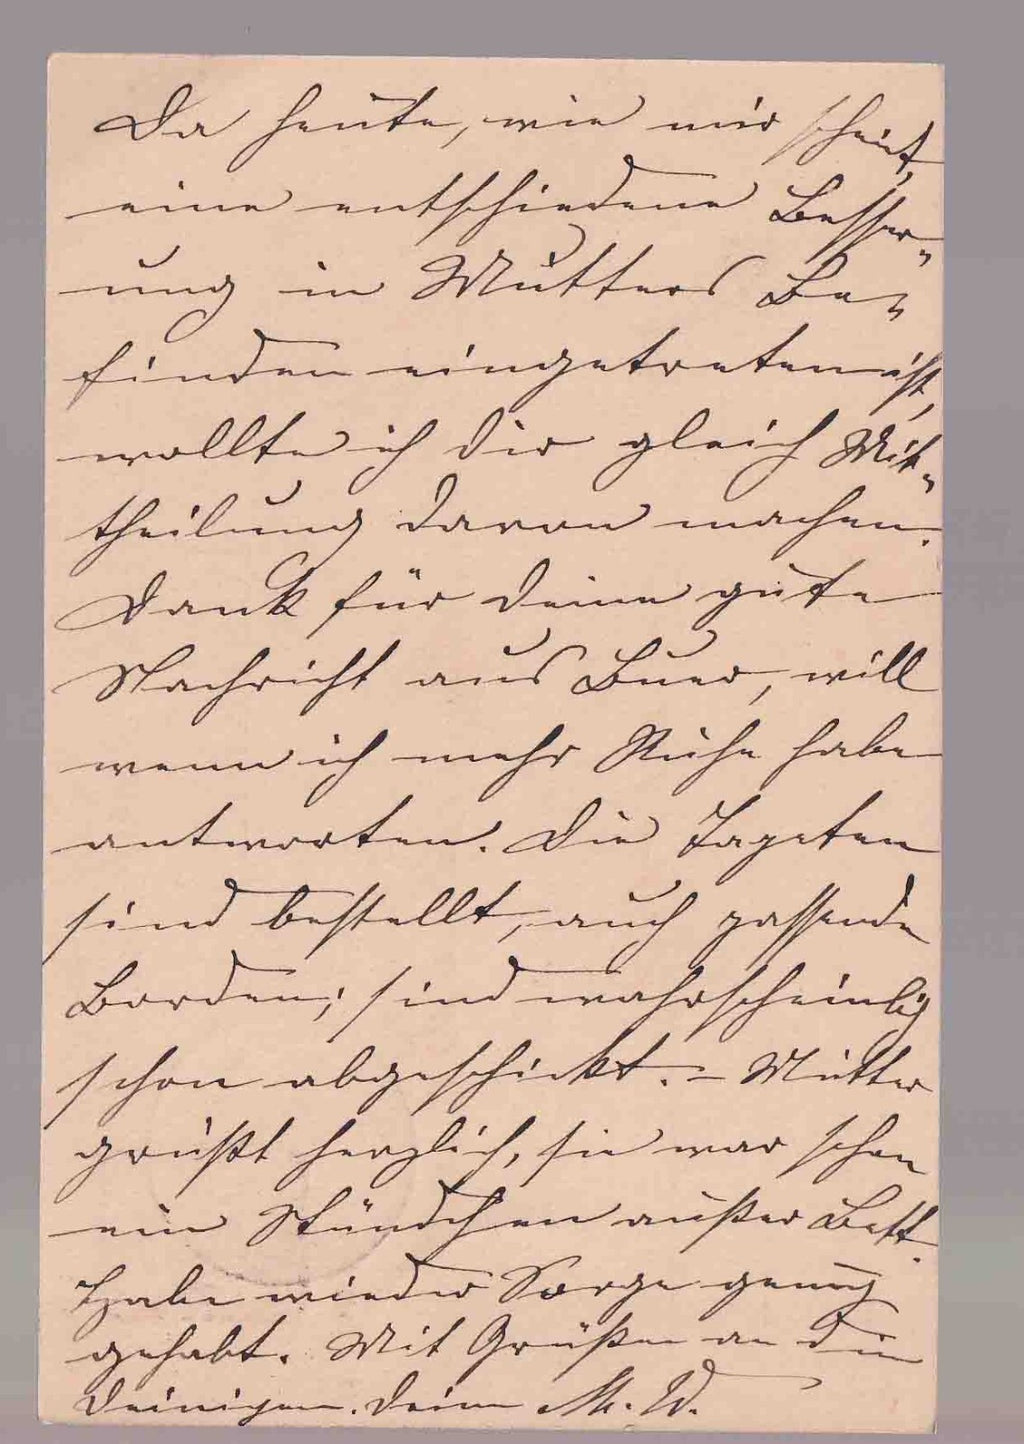 Da heute, wie mir scheint,
eine entschiedene Besser-
ung in Mutters Be-
finden eingetreten ist,
wollte ich Dir gleich Mit-
theilung davon machen.
Dank für Deine gute
Nachricht aus Buer, will
wenn ich mehr Ruhe habe
antworten. Die Tapeten
sind bestellt, auch passende
Borden; sind wahrscheinlig
schon abgeschickt. – Mutter
grüßt herzlich, sie war schon
ein Stündchen außer Bett.
Habe wieder Sorge genug
gehabt. Mit Grüßen an die
Deinigen. Deine M. W.